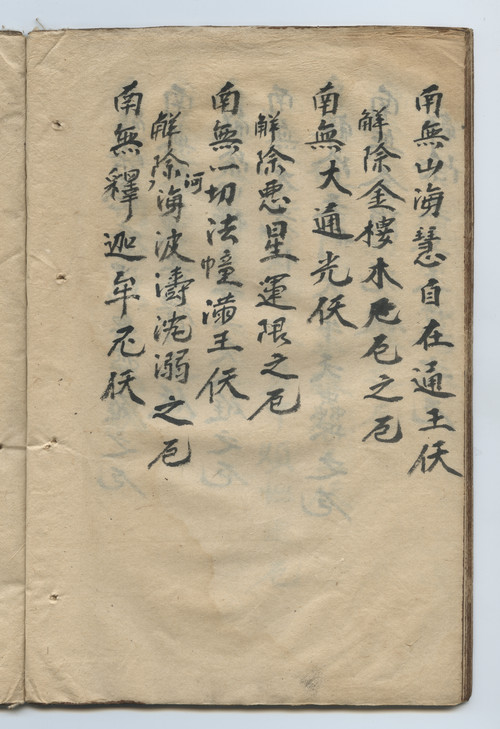 南無山海慧自在通王仸
解除金樓木厄之厄
南無大通光仸
解除悪星運限之厄
南無一切法幢满王仸
解除河海波濤沈溺之厄
南無釋迦牟尼仸